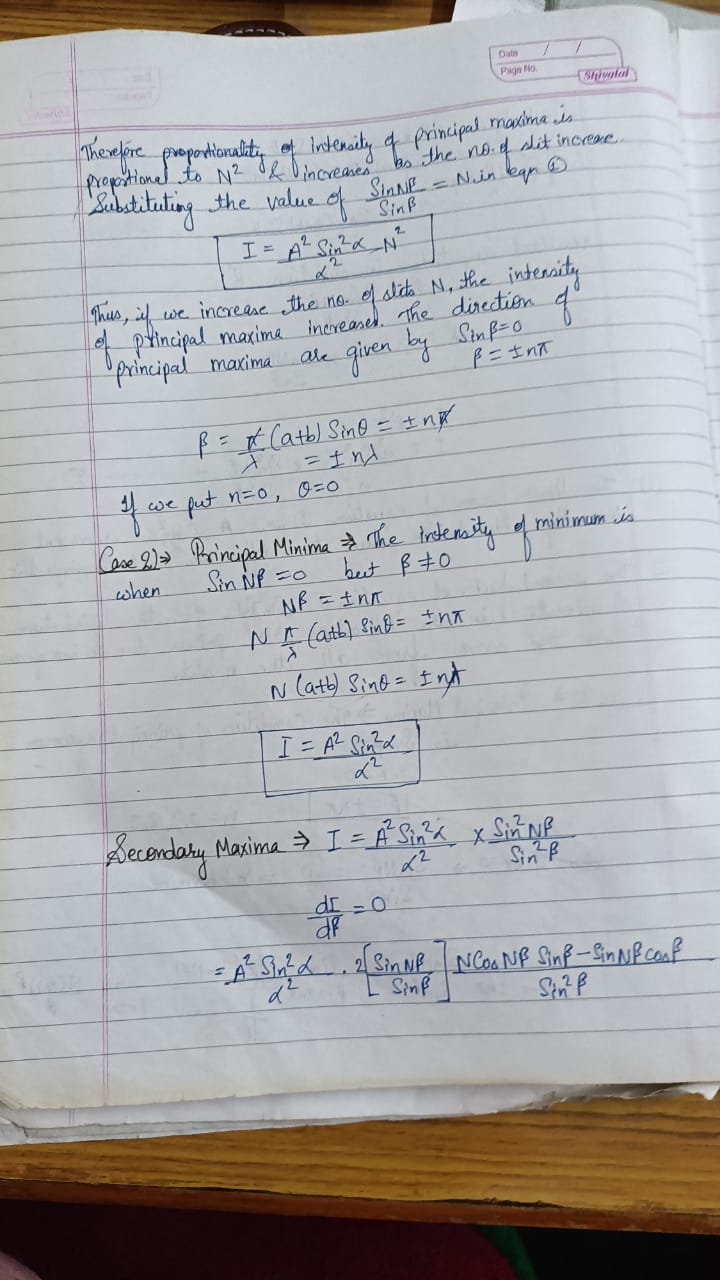 Date / /
Page No.
Shivalal
Therefore proportionality of intensity of principal maxima is
proportional to N² & increases as the no. of slit increase.
Substituting the value of SinNβ/Sinβ = N in eqn ①
I = A² Sin²α N²/α²
Thus, if we increase the no. of slits N, the intensity
of principal maxima increased. The direction of
principal maxima are given by Sinβ=0
β = ±nπ
β = π/λ (a+b) Sinθ = ±nπ
= ±nλ
If we put n=0, θ=0
Case 2)⇒ Principal Minima ⇒ The intensity of minimum is
when Sin Nβ = 0 but β ≠ 0
Nβ = ±nπ
N π/λ (a+b) Sinθ = ±nπ
N (a+b) Sinθ = ±nλ
I = A² Sin²α/α²
Secondary Maxima ⇒ I = A² Sin²α/α² x Sin²Nβ/Sin²β
dI/dβ = 0
= A² Sin²α/α² . 2[SinNβ/Sinβ] NCosNβ Sinβ – SinNβ cosβ/Sin²β